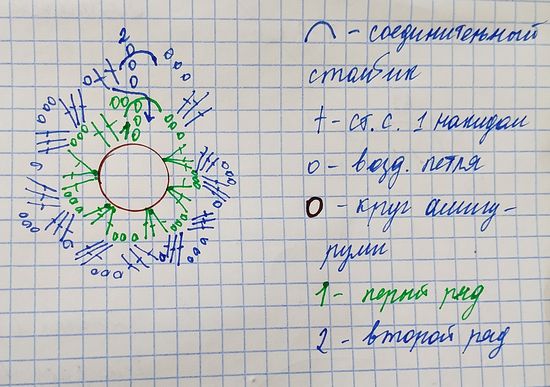 2
⌒ - соединительный
столбик
† - ст. с. 1 накидом
о - возд. петля
О - круг амигу-
руми
1 - перый ряд
2 - второй ряд
1